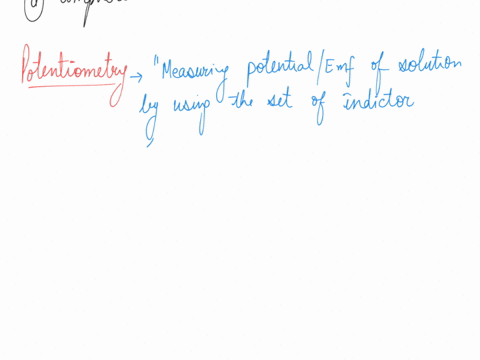 Potentiometry → "Measuring potential/Emf of solution
by using the set of indictor